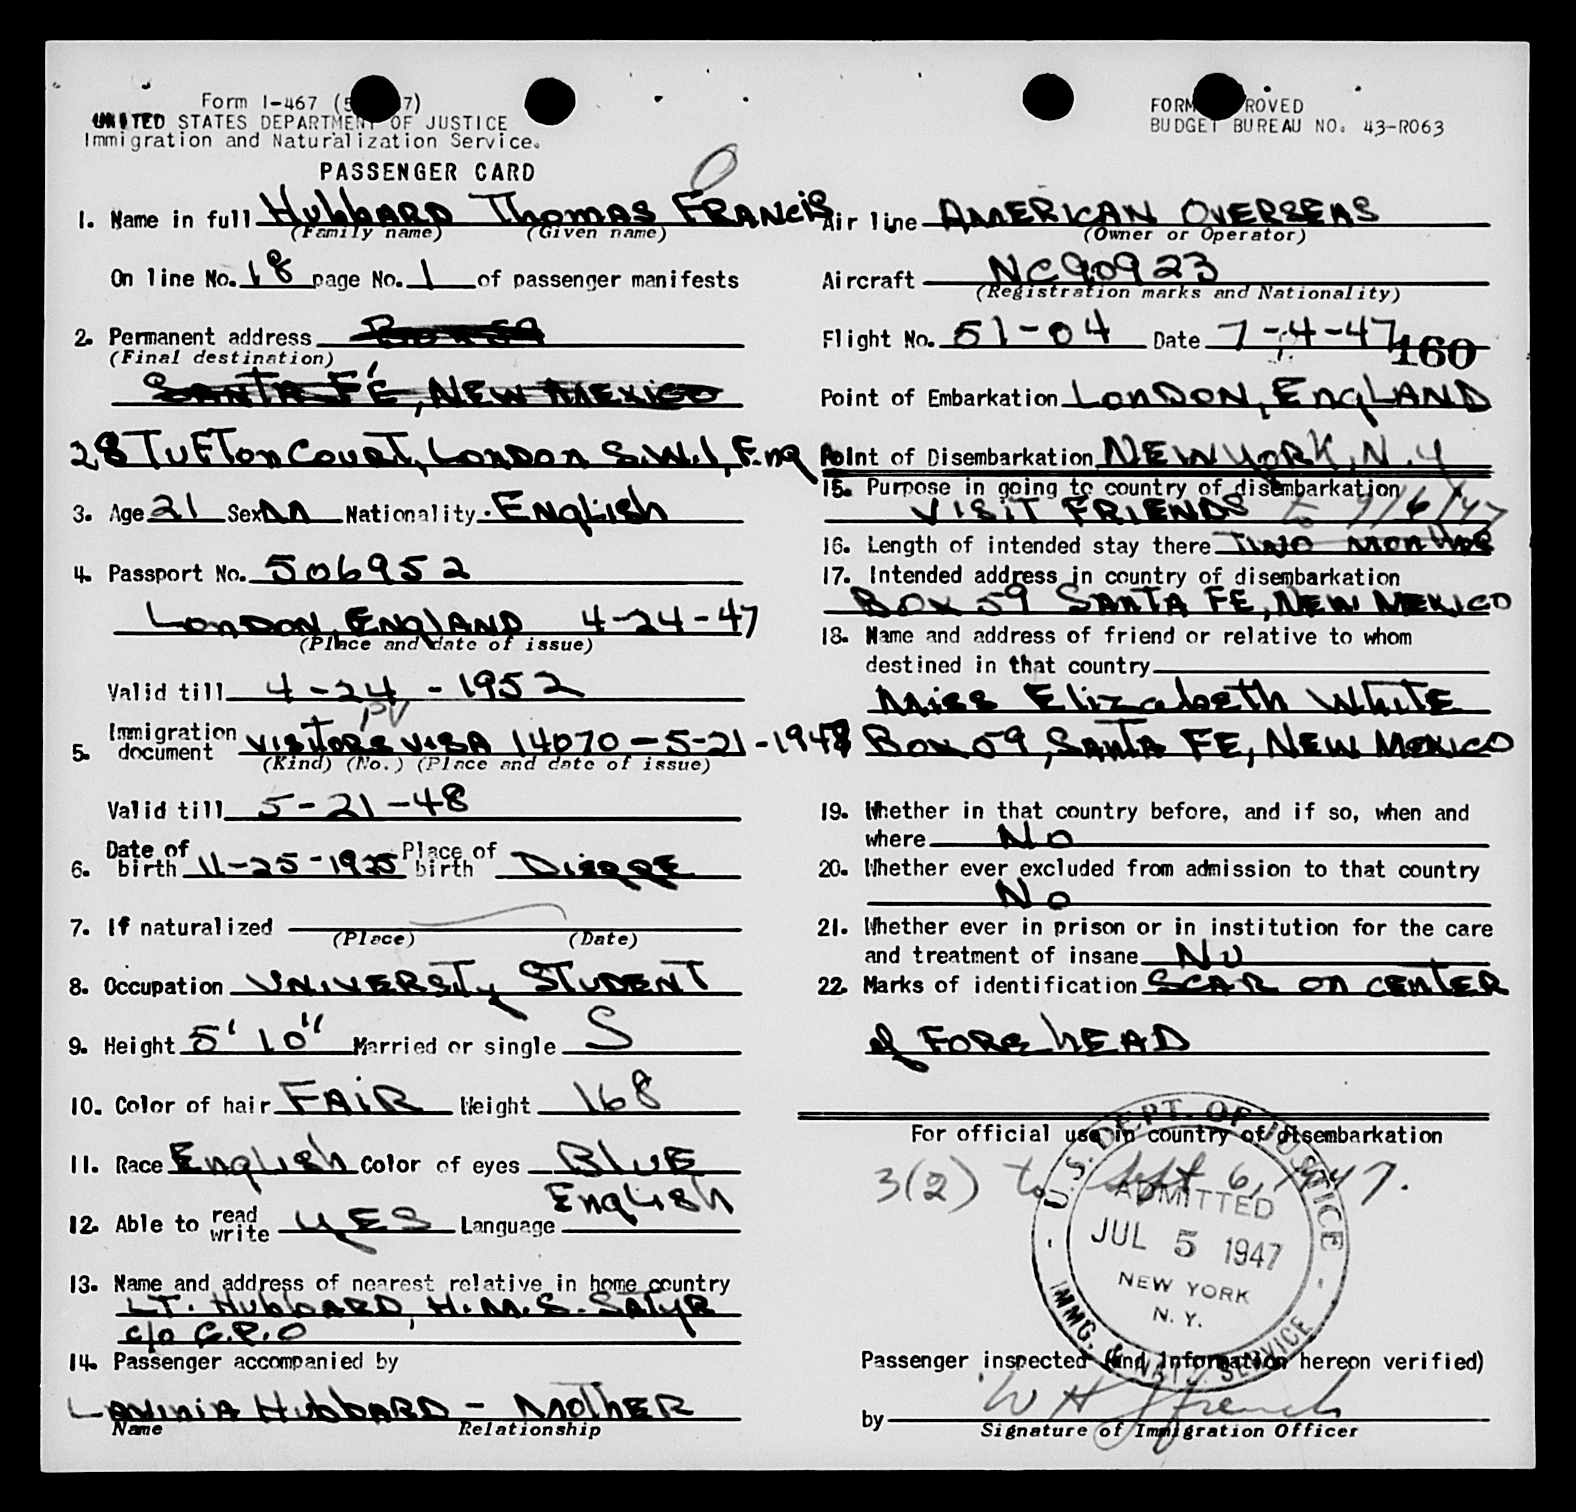 Form I-467 (5 7)
UNITED STATES DEPARTMENT OF JUSTICE
Immigration and Naturalization Service.
PASSENGER CARD
1. Name in full Hubbard Thomas Francis
(Family name) (Given name)
On line No. 18 page No. 1 of passenger manifests
2. Permanent address Box 59
(Final destination)
Santa Fé, New Mexico
28 Tufton Court, London S.W.1, Eng
3. Age 21 Sex M Nationality English
4. Passport No. 506952
London, England 4-24-47
(Place and date of issue)
Valid till 4-24-1952
PV
5. Immigration document Visitors Visa 14070-5-21-1948
(Kind) (No.) (Place and date of issue)
Valid till 5-21-48
6. Date of birth 11-25-1925 Place of birth Dieppe
7. If naturalized
(Place) (Date)
8. Occupation University Student
9. Height 5' 10" Married or single S
10. Color of hair Fair Weight 168
11. Race English Color of eyes Blue
12. Able to read write Yes Language English
13. Name and address of nearest relative in home country
Lt. Hubbard, H.M.S. Satyr
c/o G.P.O
14. Passenger accompanied by
Lavinia Hubbard - Mother
Name Relationship
FORM ROVED
BUDGET BUREAU NO. 43-R063
Air line American Overseas
(Owner or Operator)
Aircraft NC90923
(Registration marks and Nationality)
Flight No. 51-04 Date 7-4-47
160
Point of Embarkation London, England
Point of Disembarkation New York, N.Y
15. Purpose in going to country of disembarkation
Visit Friends to 9/6/47
16. Length of intended stay there Two Months
17. Intended address in country of disembarkation
Box 59 Santa Fe, New Mexico
18. Name and address of friend or relative to whom
destined in that country
Miss Elizabeth White
Box 59, Santa Fe, New Mexico
19. Whether in that country before, and if so, when and
where No
20. Whether ever excluded from admission to that country
No
21. Whether ever in prison or in institution for the care
and treatment of insane No
22. Marks of identification Scar on center
of Forehead
For official use in country of disembarkation
3(2) to Sept 6, 1947.
U.S. DEPT. OF JUSTICE
ADMITTED
JUL 5 1947
NEW YORK
N. Y.
IMMG. & NATZ. SERVICE
Passenger inspected (and information hereon verified)
by W H French
Signature of Immigration Officer